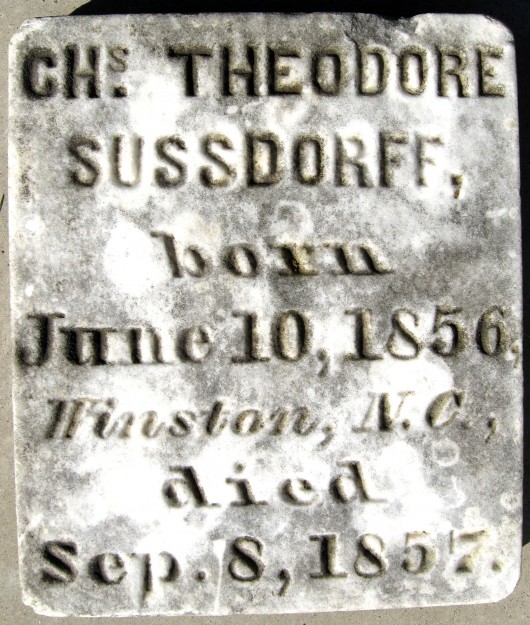 CHS. THEODORE
SUSSDORFF,
born
June 10, 1856,
Winston, N.C.,
died
Sep. 8, 1857.